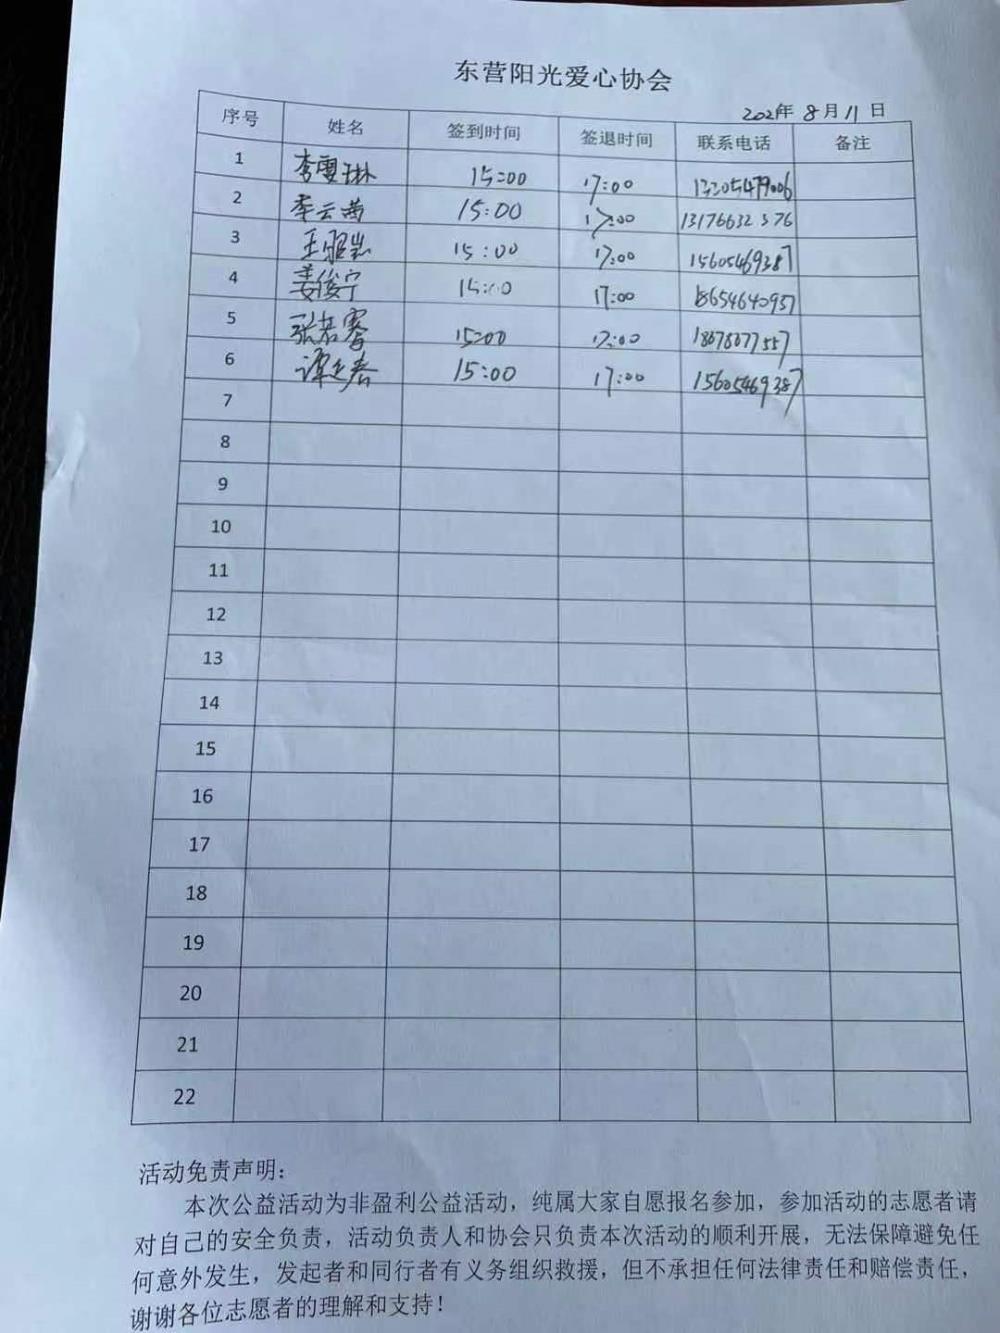 东营阳光爱心协会
2021年 8月11日
序号 姓名 签到时间 签退时间 联系电话 备注
1 李雯琳 15:00 17:00 13305479006
2 李云茜 15:00 17:00 13176632376
3 15:00 17:00 15605469387
4 姜俊宁 15:00 17:00 18654640937
5 张若骞 15:00 17:00 18678077557
6 15:00 17:00 15605469387
7
8
9
10
11
12
13
14
15
16
17
18
19
20
21
22
活动免责声明：
本次公益活动为非盈利公益活动，纯属大家自愿报名参加，参加活动的志愿者请
对自己的安全负责，活动负责人和协会只负责本次活动的顺利开展，无法保障避免任
何意外发生，发起者和同行者有义务组织救援，但不承担任何法律责任和赔偿责任，
谢谢各位志愿者的理解和支持！